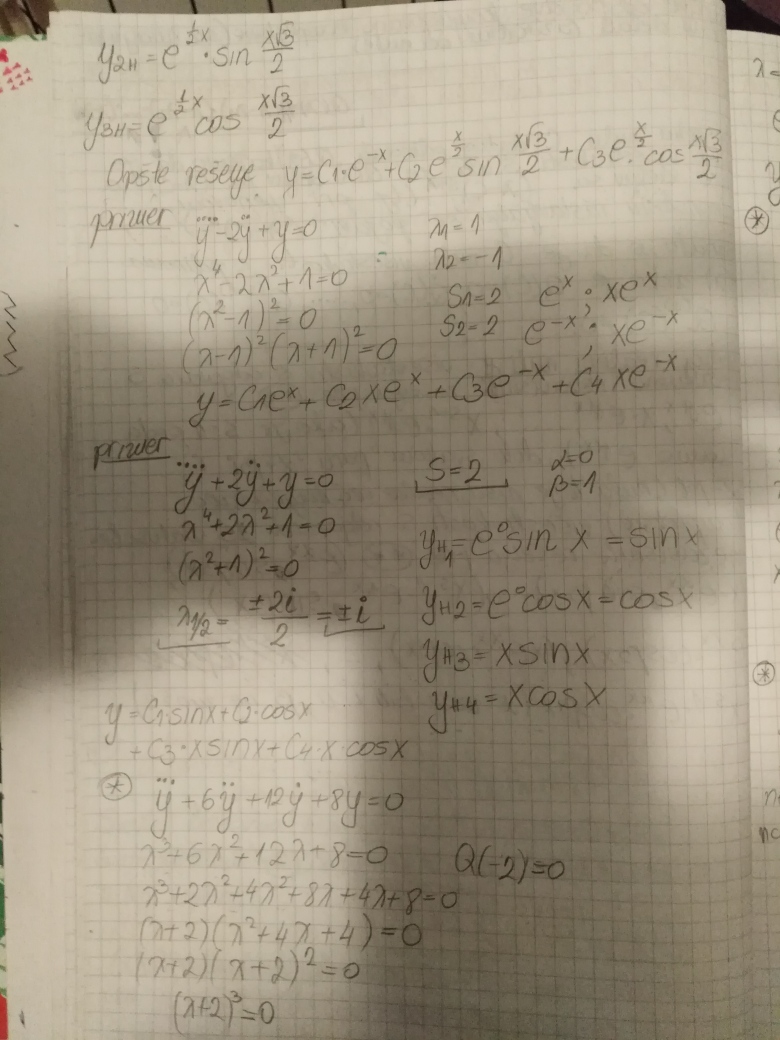 y2H = e^{1/2 x} · sin x√3/2
y3H = e^{1/2 x} cos x√3/2
Opšte rešeye y = C1·e^{-x} + C2 e^{x/2} sin x√3/2 + C3 e^{x/2}·cos x√3/2
primer
y⃜ - 2ÿ + y = 0
λ1 = 1
λ⁴ - 2λ² + 1 = 0
λ2 = -1
(λ² - 1)² = 0
S1 = 2 e^x ; xe^x
(λ-1)² (λ+1)² = 0
S2 = 2 e^{-x} ; xe^{-x}
y = C1e^x + C2 xe^x + C3 e^{-x} + C4 xe^{-x}
primer
y⃜ + 2ÿ + y = 0
S = 2
α = 0
β = 1
λ⁴ + 2λ² + 1 = 0
(λ² + 1)² = 0
λ1/2 = ±2i/2 = ±i
yH1 = e⁰ sin x = sin x
yH2 = e⁰ cos x = cos x
yH3 = x sin x
yH4 = x cos x
y = C1·sin x + C2·cos x
+ C3·x sin x + C4·x·cos x
* y⃛ + 6ÿ + 12ẏ + 8y = 0
λ³ + 6λ² + 12λ + 8 = 0
Q(-2) = 0
λ³ + 2λ² + 4λ² + 8λ + 4λ + 8 = 0
(λ+2)(λ² + 4λ + 4) = 0
(λ+2)(λ+2)² = 0
(λ+2)³ = 0